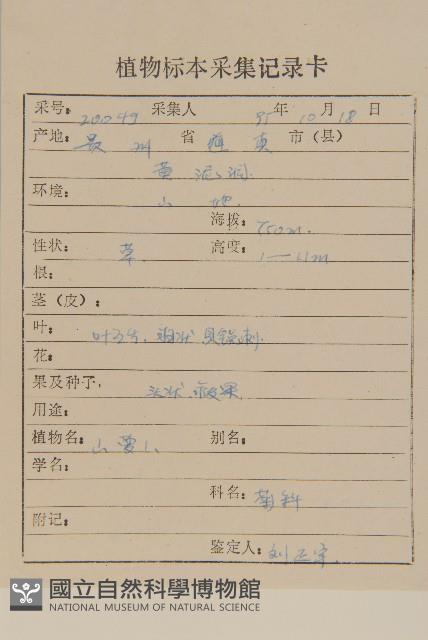 植物标本采集记录卡
采号: 20049 采集人 95年10月18日
产地: 贵州 省 道真 市（县）
黄泥洞
环境: 山地
海拔: 750m.
性状: 草. 高度: 1—1.1m
根:
茎（皮）:
叶: 叶互生.
花:
果及种子,
用途:
植物名: 山 别名:
学名:
科名: 菊科
附记:
鉴定人: 刘正宇
國立自然科學博物館
NATIONAL MUSEUM OF NATURAL SCIENCE